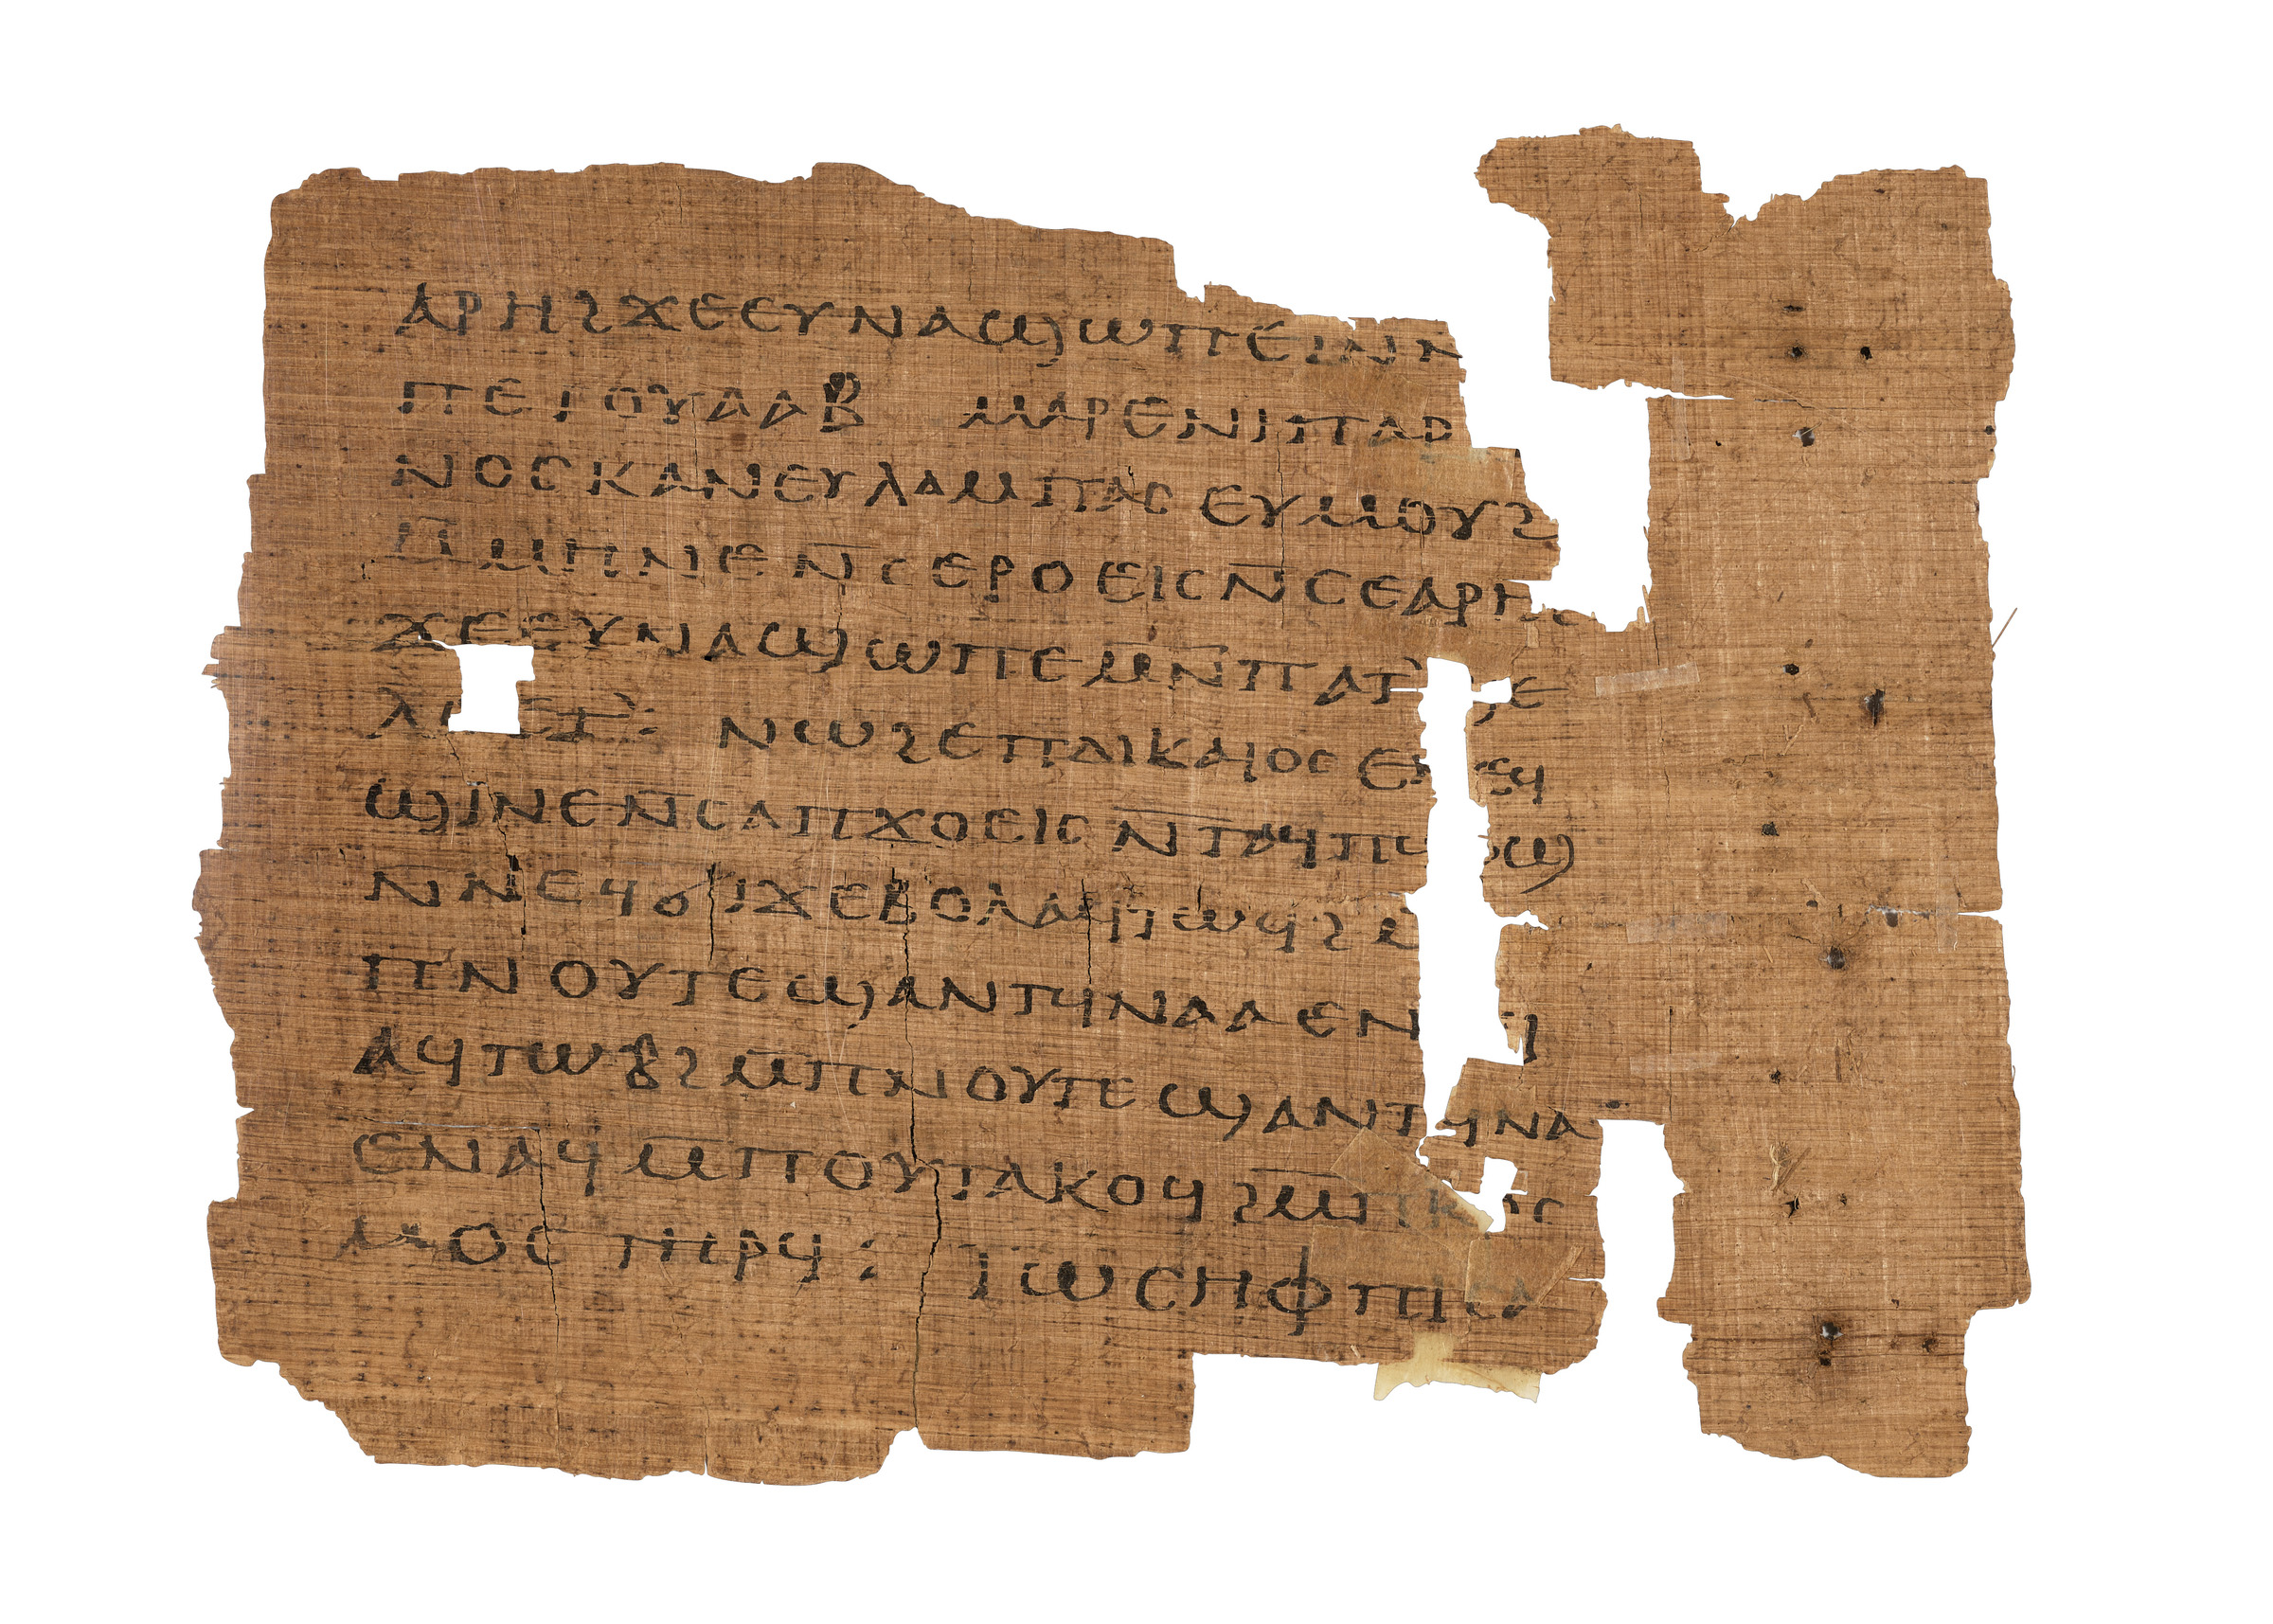 ⲁⲣⲏϩϫⲉⲉⲩⲛⲁϣⲱⲡⲉⲓⲛⲛ
ⲡⲉⲧⲟⲩⲁⲁⲃ ⲙⲁⲣⲉⲛⲓⲡⲁⲣ
ⲛⲟⲥⲕⲁⲛⲉⲩⲗⲁⲙⲡⲁⲥ ⲉⲩⲙⲟⲩϩ
ⲙⲙⲏⲛⲉⲛ̄ⲥⲉⲣⲟⲉⲓⲥⲛ̄ⲥⲉⲁⲣⲏϩ
ϫⲉⲉⲩⲛⲁϣⲱⲡⲉⲙⲛ̄ⲡⲁⲅ ⲉ
ⲛⲱϩⲉⲡⲇⲓⲕⲁⲓⲟⲥ
ϣⲓⲛⲉⲛ̄ⲥⲁⲡϫⲟⲉⲓⲥⲛ̄ⲧⲁϥⲡⲱ ϣ
ⲛ̄ⲛⲉϥϭⲓϫⲉⲃⲟⲗⲁϥⲧⲱϥϩ
ⲡⲛⲟⲩⲧⲉϣⲁⲛⲧϥⲛⲁⲁⲉⲛ ϥ
ⲁϥⲧⲱⲃϩⲙ̄ⲡⲛⲟⲩⲧⲉϣⲁⲛⲧϥⲛⲁ
ⲉⲛⲁϥⲙ̄ⲡⲟⲩⲧⲁⲕⲟϥϩⲙ̄ⲡⲕ ⲥ
ⲙⲟⲥⲧⲏⲣϥ: ⲓ̈ⲱⲥⲏⲫⲡⲓⲥⲁ